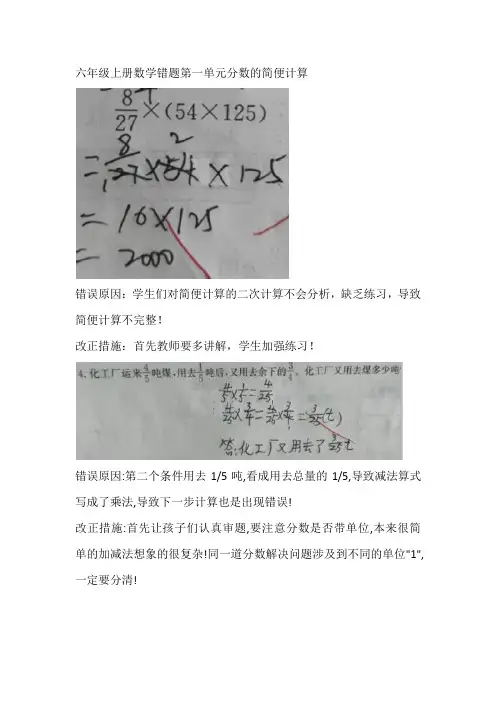 六年级上册数学错题第一单元分数的简便计算
8/27×(54×125)
=8/27×54×125
1 2
=16×125
=2000
错误原因：学生们对简便计算的二次计算不会分析，缺乏练习，导致
简便计算不完整！
改正措施：首先教师要多讲解，学生加强练习！
4. 化工厂运来4/5吨煤，用去1/5吨后，又用去余下的3/4。化工厂又用去煤多少吨
4/5×1/5=4/25
4/25×3/4=4/25×3/4=3/25(t)
答:化工厂又用去了3/25t
错误原因:第二个条件用去 1/5 吨,看成用去总量的 1/5,导致减法算式
写成了乘法,导致下一步计算也是出现错误!
改正措施:首先让孩子们认真审题,要注意分数是否带单位,本来很简
单的加减法想象的很复杂!同一道分数解决问题涉及到不同的单位"1",
一定要分清!